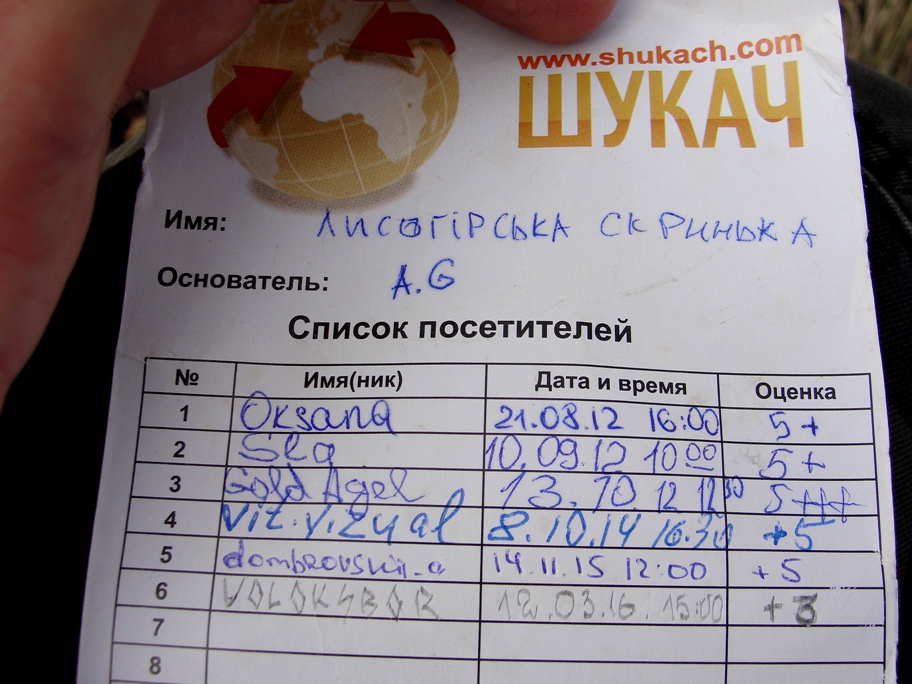 www.shukach.com
ШУКАЧ
Имя: ЛИСОГІРСЬКА СКРИНЬКА
Основатель: A.G
Список посетителей
№ Имя(ник) Дата и время Оценка
1 Oksana 21.08.12 16:00 5+
2 Sla 10.09.12 10 00 5+
3 Gold Agel 13.10.12 12 30 5+++
4 vit.vizual 8.10.14 16.30 +5
5 dombrovskii-a 14.11.15 12:00 +5
6 VOLOKSBOR 12.03.16. 15:00 +3
7
8